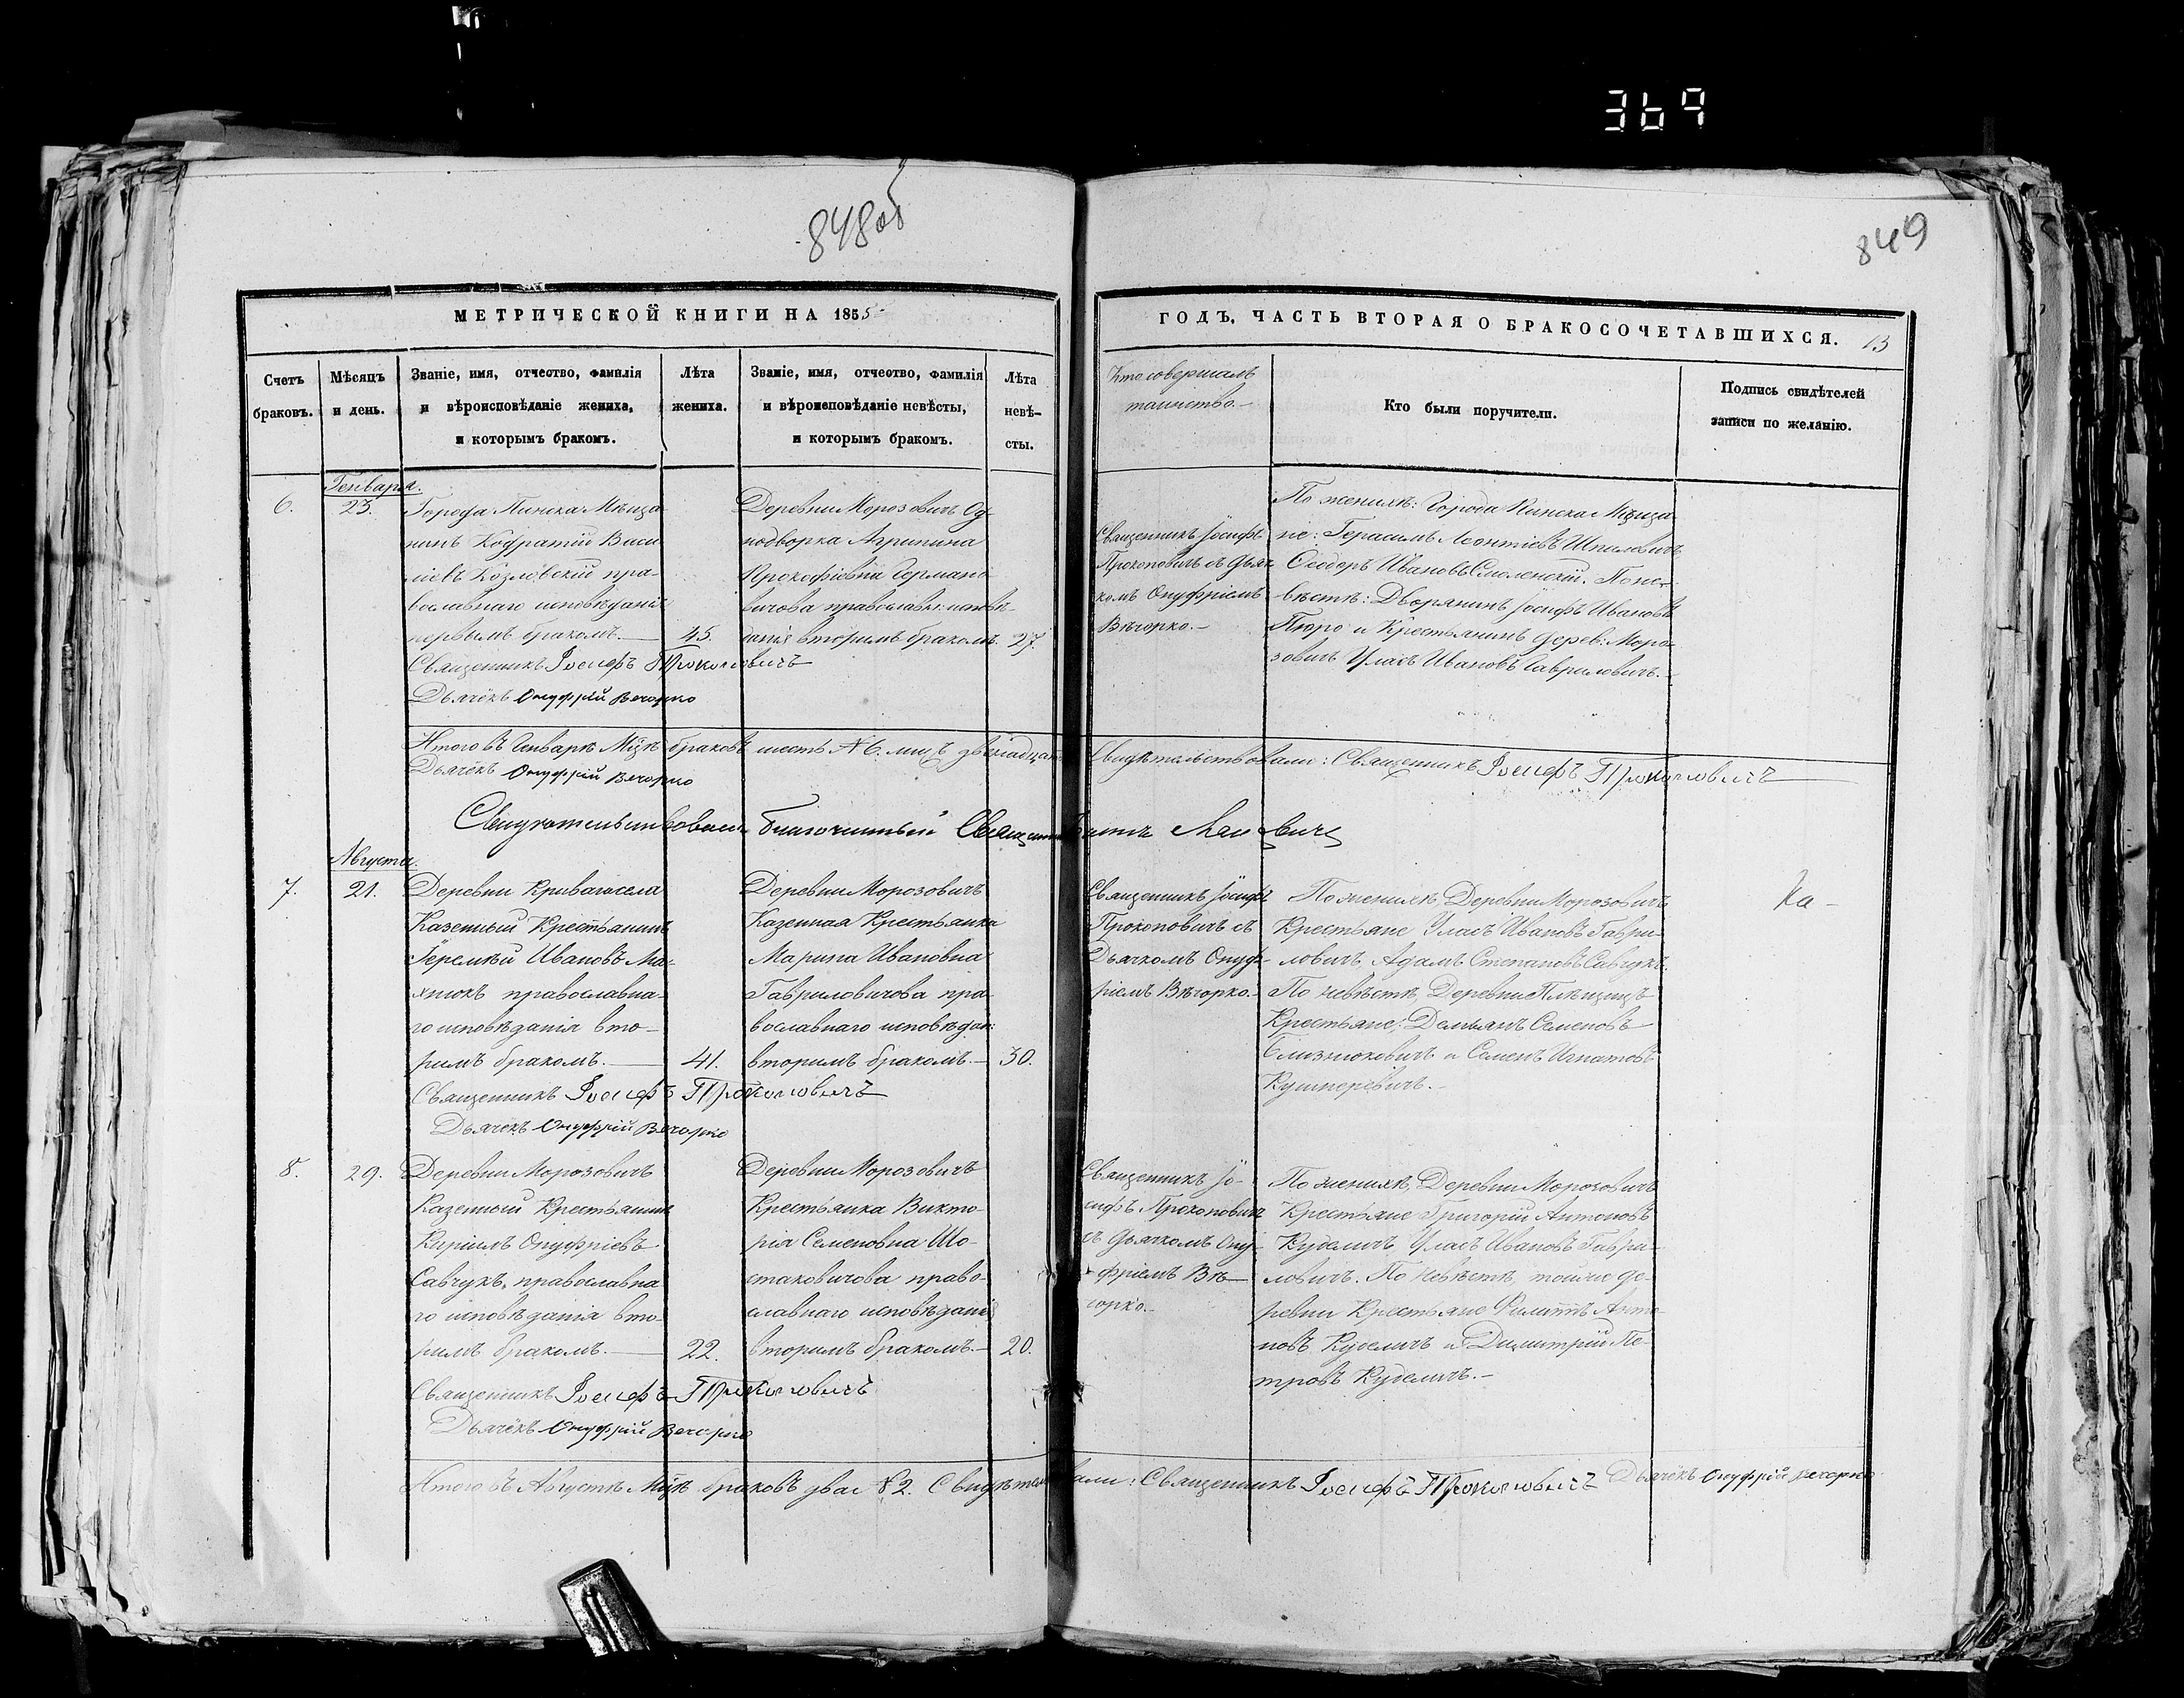 369
848об
849
МЕТРИЧЕСКОЙ КНИГИ НА 1855
ГОДЪ, ЧАСТЬ ВТОРАЯ О БРАКОСОЧЕТАВШИХСЯ. 13
Счетъ
браковъ.
Мѣсяцъ
и день.
Званіе, имя, отчество, фамилія
и вѣроисповѣданіе жениха,
и которымъ бракомъ.
Лѣта
жениха.
Званіе, имя, отчество, фамилія
и вѣроисповѣданіе невѣсты,
и которымъ бракомъ.
Лѣта
невѣ-
сты.
Кто совершалъ
таинство.-
Кто были поручители.
Подпись свидѣтелей
записи по желанію.
Генваря.
6.
23.
Города Пинска Мѣща
нинъ Кодратій Васи
ліевъ Козловскій пра-
вославнаго исповѣданія
первымъ бракомъ.
45.
Деревни Морозовичъ Од-
нодворка Агрипина
Прокофіевна Германо
вичова православн: исповѣ-
данія вторымъ бракомъ.
27.
Священникъ Іосифъ Прокоповичъ
Дьячёкъ Онуфрій Вечорко
Священникъ Іосифъ
Прокоповичъ съ Дьяч
комъ Онуфріемъ
Вѣчорко.-
По женихѣ: Города Пинска Мѣща
не: Герасимъ Леонтіевъ Шпилевичъ
Ѳеодоръ Ивановъ Смоленскій. По не-
вѣстѣ: Дворянинъ Іосифъ Ивановъ
Пюро и Крестьянинъ дерев: Моро
зовичъ Уласъ Ивановъ Гавриловичъ.-
Итого въ Генварѣ Мцѣ браковъ шесть № 6. лицъ двенадцать
Свидѣтельствовали: Священникъ Іосифъ Прокоповичъ
Дьячёкъ Онуфрій Вечорко
Свидѣтельствовалъ благочинный Священникъ
Августа.
7.
21.
Деревни Кривагосела
Казенный Крестьянинъ
Іеремѣй Ивановъ Ма-
хнюкъ православна-
го исповѣданія вто-
рымъ бракомъ.
41.
Деревни Морозовичъ
Казенная Крестьянка
Марина Ивановна
Гавриловичова пра-
вославнаго исповѣдан:
вторымъ бракомъ.-
30.
Священникъ Іосифъ Прокоповичъ
Дьячёкъ Онуфрій Вечорко
Священникъ Іосифъ
Прокоповичъ съ
Дьячкомъ Онуф-
ріемъ Вѣчорко.-
По женихѣ, Деревни Морозовичъ
Крестьяне Уласъ Ивановъ Гаври-
ловичъ Адамъ Степановъ Савчукъ.
По невѣстѣ, Деревни Плещицъ
Крестьяне: Демьянъ Семеновъ
Близнюковичъ и Семенъ Игнатовъ
Кушнеревичъ.-
На-
8.
29.
Деревни Морозовичъ
Казенный Крестьянинъ
Кирилъ Онуфріевъ
Савчукъ, православна
го исповѣданія вто-
рымъ бракомъ.
22.
Деревни Морозовичъ
Крестьянка Викто-
рія Семеновна Шо-
стаковичова право-
славнаго исповѣданія
вторымъ бракомъ.-
20.
Священникъ Іосифъ Прокоповичъ
Дьячёкъ Онуфрій Вечорко
Священникъ Іо-
сифъ Прокоповичъ
съ Дьячкомъ Ону-
фріемъ Вѣ-
чорко.-
По женихѣ, Деревни Морозовичъ
Крестьяне Григорій Антоновъ
Куделичъ, Уласъ Ивановъ Гаври-
ловичъ. По Невѣстѣ, тойже де-
ревни Крестьяне Филиппъ Анто
новъ Куделичъ и Димитрій Пе-
тровъ Куделичъ.-
Итого въ Августѣ Мцѣ браковъ два № 2. Свидѣтельствовали: Священникъ Іосифъ Прокоповичъ Дьячёкъ Онуфрій Вечорко